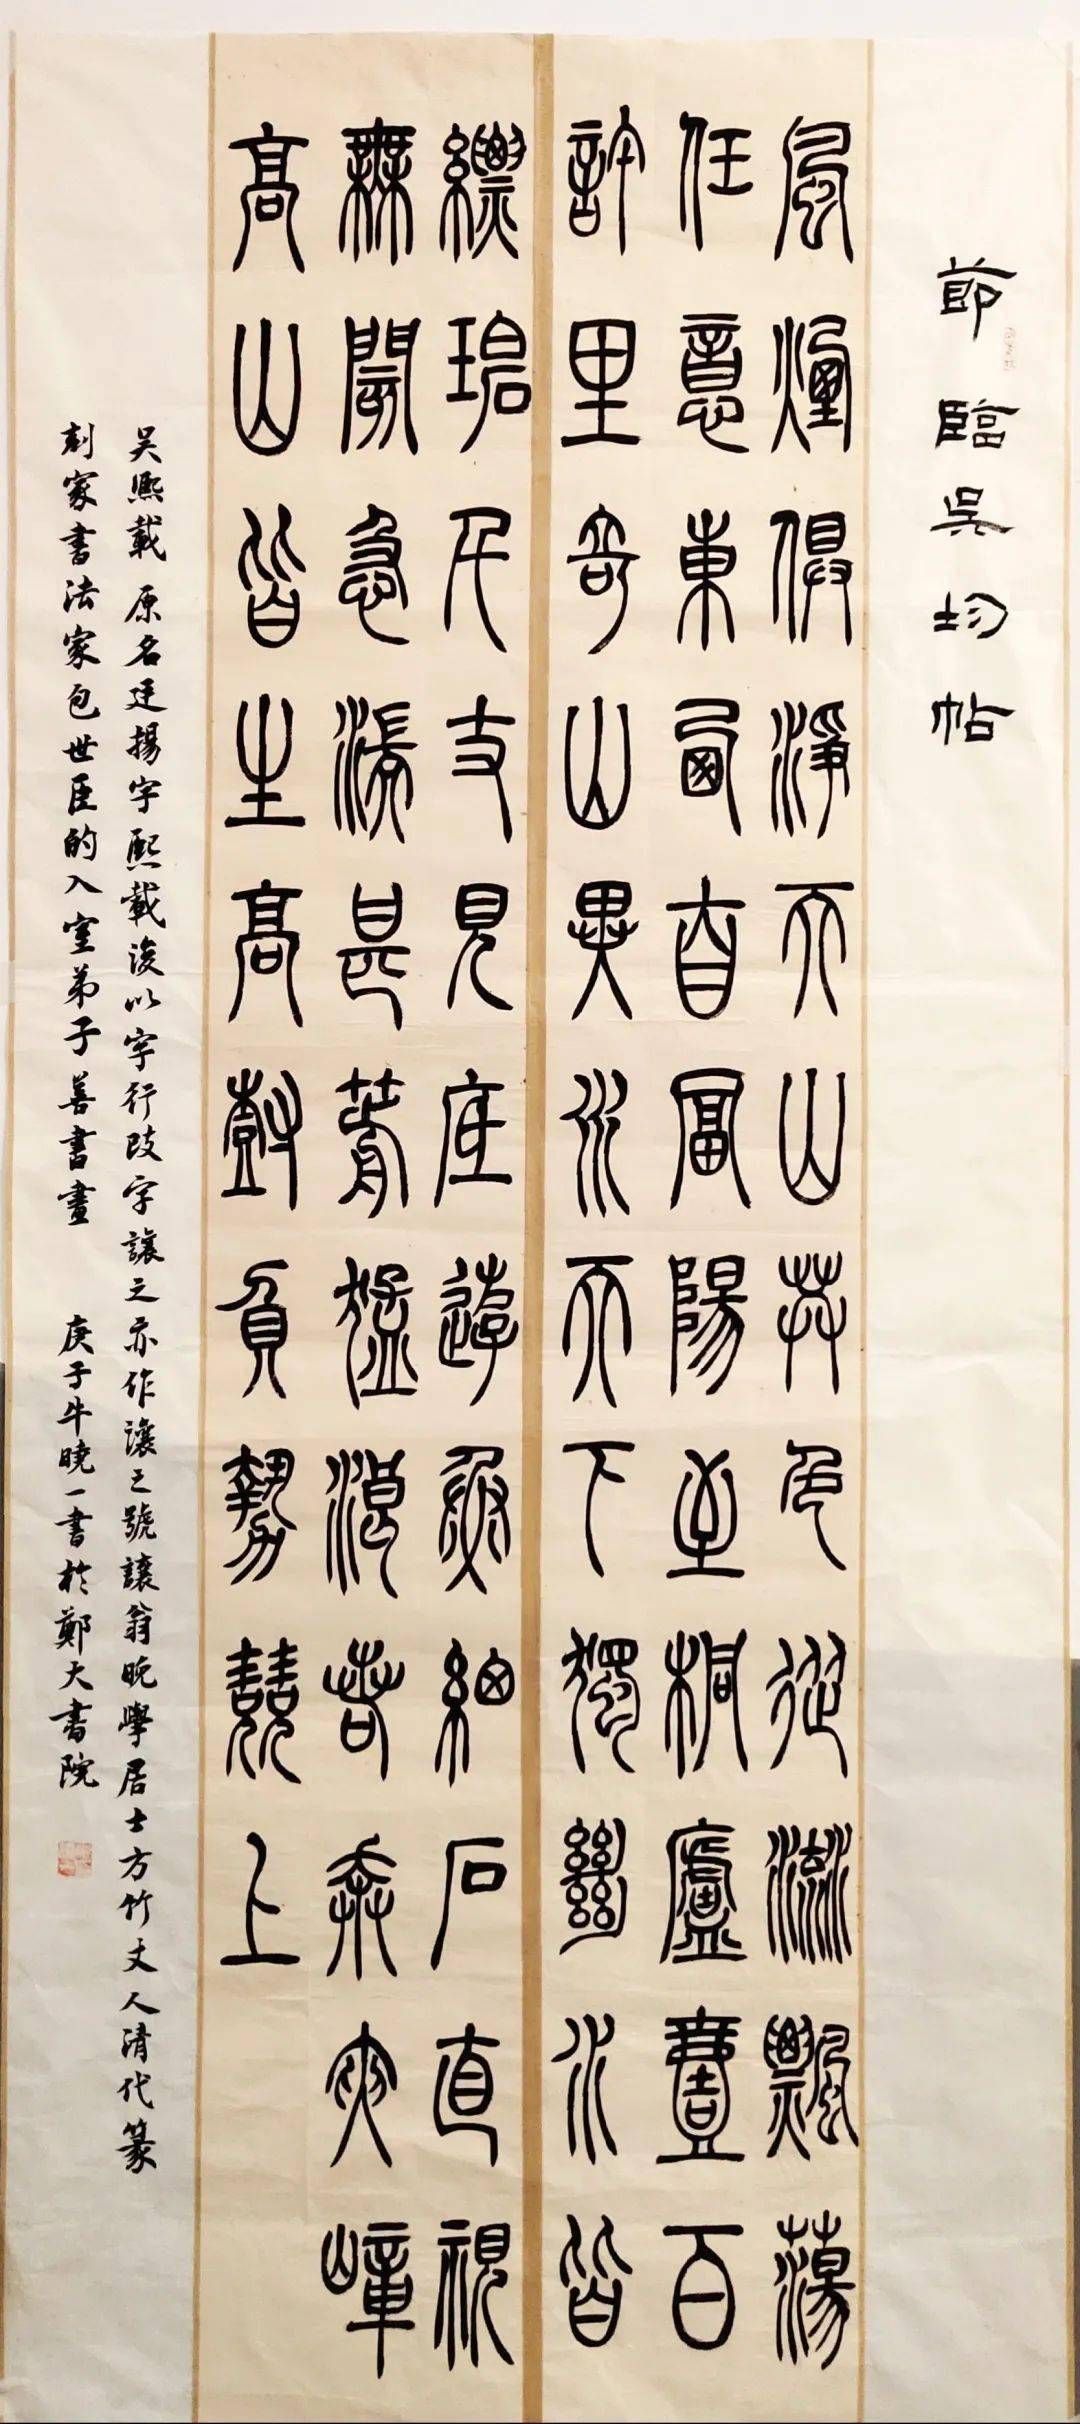 節臨吳均帖
風煙俱淨天山共色從流飄蕩
任意東西自富陽至桐廬壹百
許里奇山異水天下獨絕水皆
縹碧千丈見底遊魚細石直視
無閡急湍甚箭猛浪若奔夾嶂
高山皆生高尌負勢競上
吳熙載 原名廷揚字熙載後以字行改字讓之亦作攘之號讓翁晚學居士方竹丈人清代篆
刻家書法家包世臣的入室弟子善書畫 庚子牛曉一書於鄭大書院